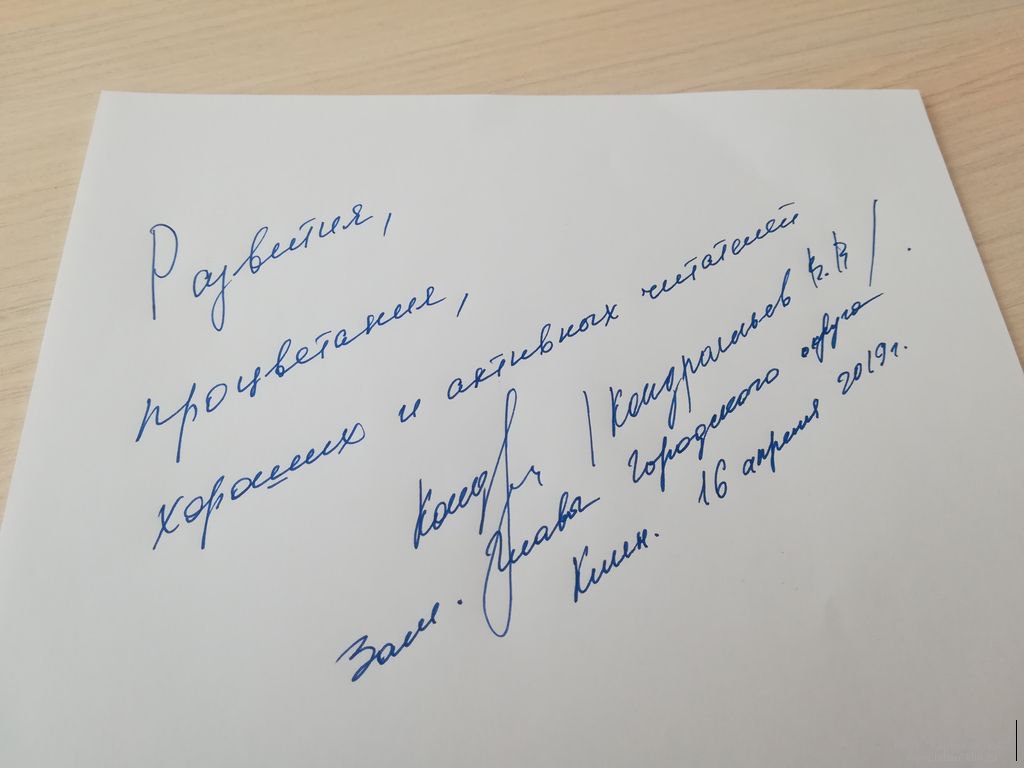 Развития,
процветания,
хороших и активных читателей
/Кондратьев В.В/.
Зам. Главы городского округа
Клин. 16 апреля 2019г.